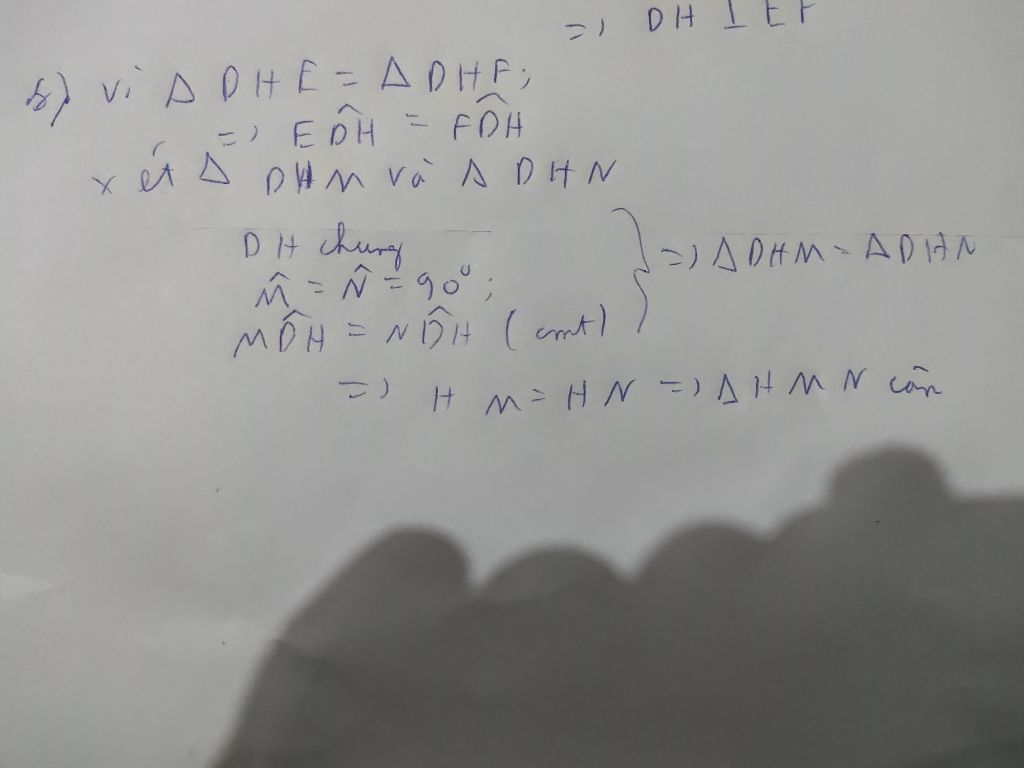 => DH ⊥ EF
b) vì Δ DHE = Δ DHF;
=> ED̂H = FD̂H
xét Δ DHM và Δ DHN
DH chung
M̂ = N̂ = 90°;
MD̂H = ND̂H (cmt)
=> Δ DHM = Δ DHN
=> HM = HN => Δ HMN cân